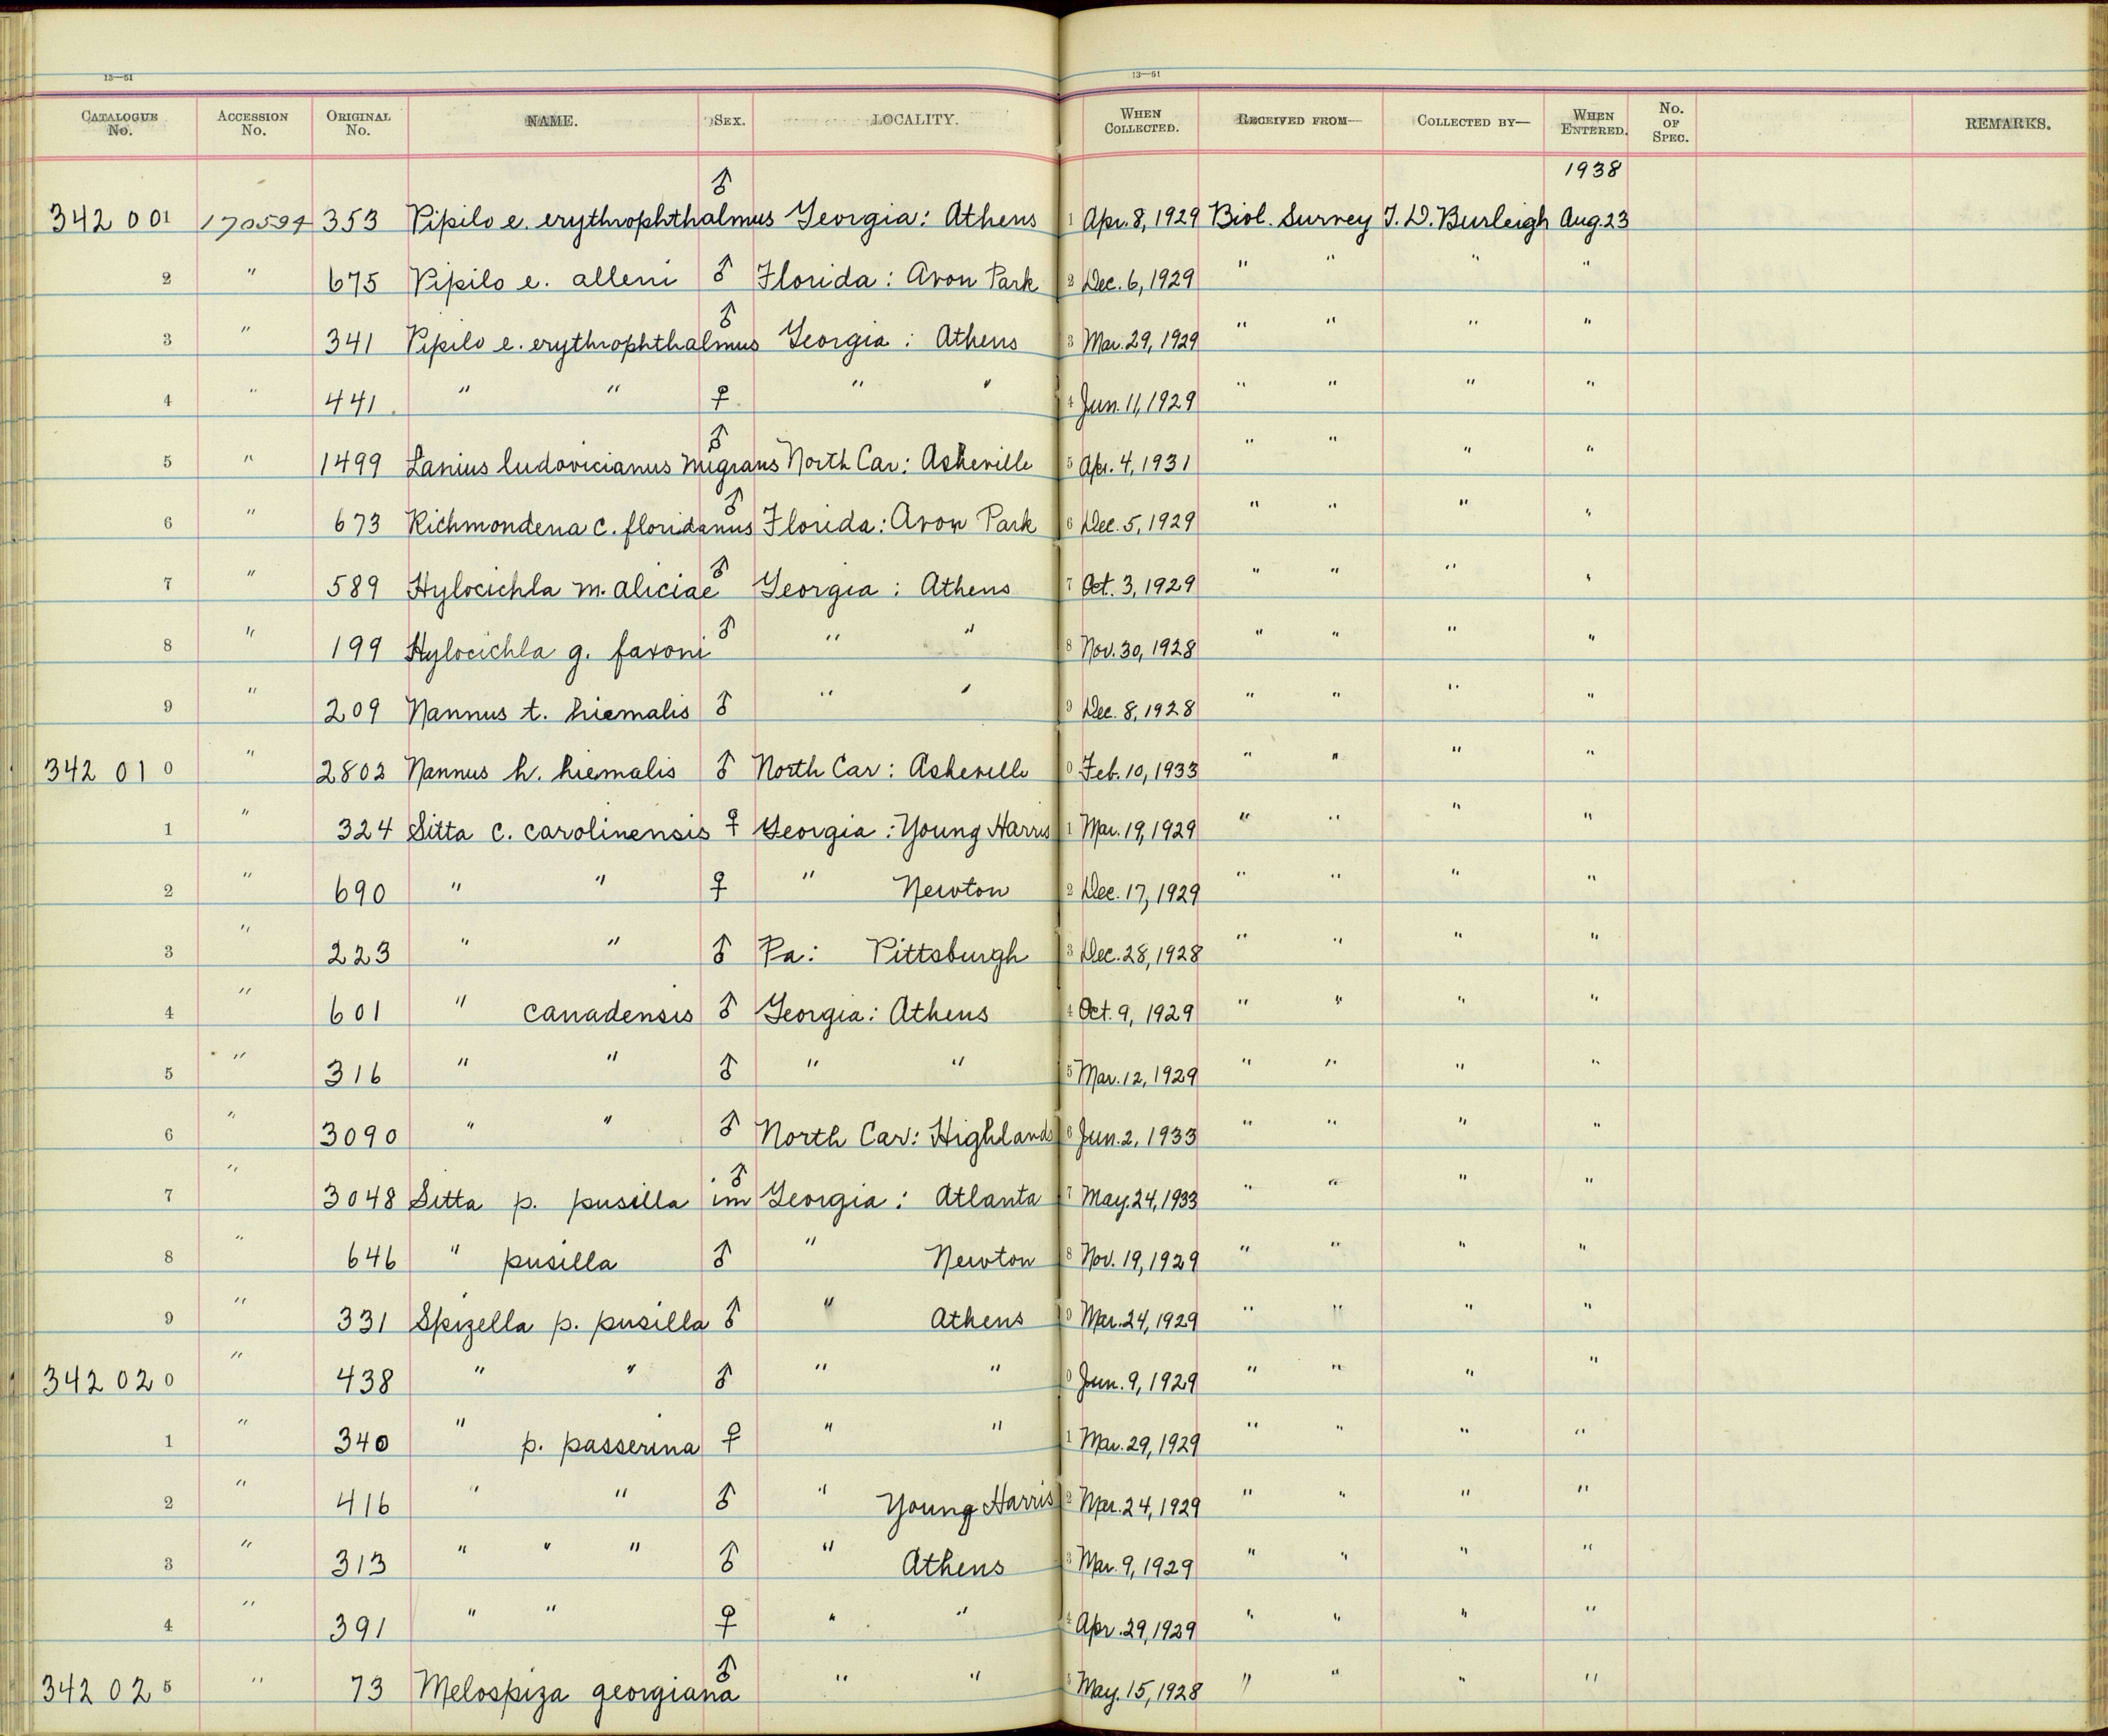 13—51 13—51
CATALOGUE No. ACCESSION No. ORIGINAL No. NAME. SEX. LOCALITY. WHEN COLLECTED. RECEIVED FROM— COLLECTED BY— WHEN ENTERED. No. OF SPEC. REMARKS.
1938
342 001 170594 353 Pipilo e. erythrophthalmus ♂ Georgia: Athens 1 Apr. 8, 1929 Biol. Survey T. D. Burleigh Aug. 23
2 " 675 Pipilo e. alleni ♂ Florida: Avon Park 2 Dec. 6, 1929 " " " "
3 " 341 Pipilo e. erythrophthalmus ♂ Georgia: Athens 3 Mar. 29, 1929 " " " "
4 " 441 " " ♀ " " 4 Jun. 11, 1929 " " " "
5 " 1499 Lanius ludovicianus migrans ♂ North Car: Asheville 5 Apr. 4, 1931 " " " "
6 " 673 Richmondena c. floridanus ♂ Florida: Avon Park 6 Dec. 5, 1929 " " " "
7 " 589 Hylocichla m. aliciae ♂ Georgia: Athens 7 Oct. 3, 1929 " " " "
8 " 199 Hylocichla g. faxoni ♂ " " 8 Nov. 30, 1928 " " " "
9 " 209 Nannus t. hiemalis ♂ " " 9 Dec. 8, 1928 " " " "
342 010 " 2802 Nannus h. hiemalis ♂ North Car: Asheville 0 Feb. 10, 1933 " " " "
1 " 324 Sitta c. carolinensis ♀ Georgia: Young Harris 1 Mar. 19, 1929 " " " "
2 " 690 " " ♀ " Newton 2 Dec. 17, 1929 " " " "
3 " 223 " " ♂ Pa: Pittsburgh 3 Dec. 28, 1928 " " " "
4 " 601 " canadensis ♂ Georgia: Athens 4 Oct. 9, 1929 " " " "
5 " 316 " " ♂ " " 5 Mar. 12, 1929 " " " "
6 " 3090 " " ♂ North Car: Highlands 6 Jun. 2, 1933 " " " "
7 " 3048 Sitta p. pusilla ♂ im Georgia: Atlanta 7 May. 24, 1933 " " " "
8 " 646 " pusilla ♂ " Newton 8 Nov. 19, 1929 " " " "
9 " 331 Spizella p. pusilla ♂ " Athens 9 Mar. 24, 1929 " " " "
342 020 " 438 " " ♂ " " 0 Jun. 9, 1929 " " " "
1 " 340 " p. passerina ♀ " " 1 Mar. 29, 1929 " " " "
2 " 416 " " ♂ " Young Harris 2 Mar. 24, 1929 " " " "
3 " 313 " " " ♂ " Athens 3 Mar. 9, 1929 " " " "
4 " 391 " " ♀ " " 4 Apr. 29, 1929 " " " "
342 025 " 73 Melospiza georgiana ♂ " " 5 May. 15, 1928 " " " "